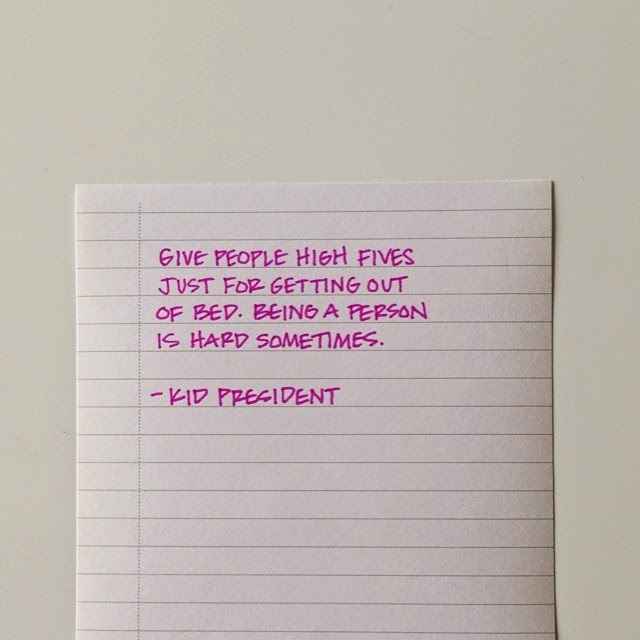 GIVE PEOPLE HIGH FIVES
JUST FOR GETTING OUT
OF BED. BEING A PERSON
IS HARD SOMETIMES.
- KID PRESIDENT